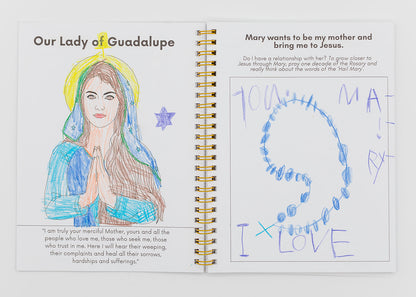 Our Lady of Guadalupe
"I am truly your merciful Mother, yours and all the
people who love me, those who seek me, those
who trust in me. Here I will hear their weeping,
their complaints and heal all their sorrows,
hardships and sufferings."
Mary wants to be my mother and
bring me to Jesus.
Do I have a relationship with her? To grow closer to
Jesus through Mary, pray one decade of the Rosary and
really think about the words of the 'Hail Mary'.
YOU MA
RY
I LOVE